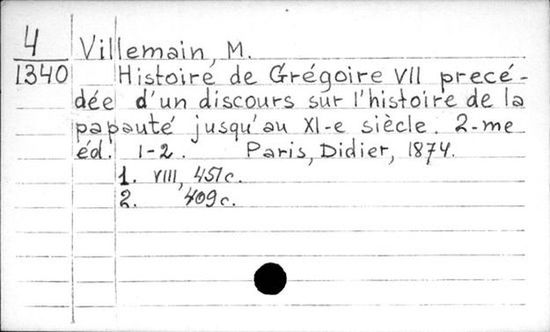 4 Villemain, M.
1340 Histoire de Grégoire VII precé-
dée d'un discours sur l'histoire de la
papauté jusqu'au XI-e siècle. 2-me
éd. 1-2. Paris, Didier, 1874.
1. VIII, 451c.
2. 409c.